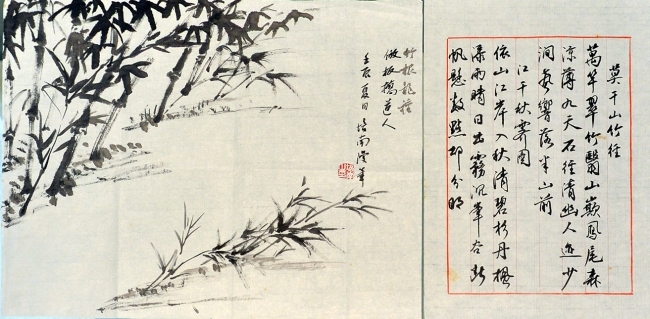 莫干山竹徑
萬竿翠竹翳山巔鳳尾森
涼薄九天石徑清幽人迹少
澗泉響落半山前
江干秋霽圖
依山江岸入秋清碧杉丹楓
瀑雨晴日出霧沉峯谷
帆懸數點却分明
竹根龍種
倣板橋道人
壬辰夏日 培南漫筆